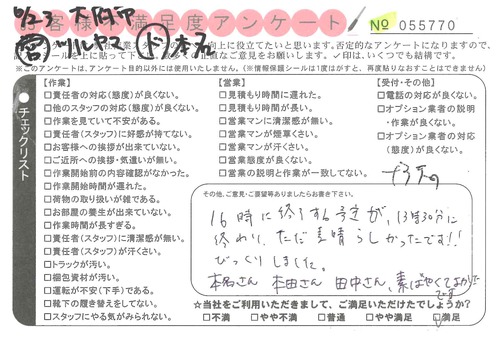 6/23 大阪市
お客様満足度アンケート
㊢ツルヤス
№055770
※このアンケートは、アンケート目的以外には使用いたしません。(※情報保護シールは1度はがすと、再度貼りなおすことはできません)
チェックリスト
【作業】
□責任者の対応(態度)が良くない。
□他のスタッフの対応(態度)が良くない。
□作業を見ていて不安がある。
□責任者(スタッフ)に好感が持てない。
□お客様への挨拶が出来ていない。
□ご近所への挨拶・気遣いが無い。
□作業開始前の内容確認がなかった。
□作業開始時間が遅れた。
□荷物の取り扱いが雑である。
□お部屋の養生が出来ていない。
□作業時間が長すぎる。
□責任者(スタッフ)に清潔感が無い。
□責任者(スタッフ)が汗くさい。
□トラックが汚い。
□梱包資材が汚い。
□運転が不安(下手)である。
□靴下の履き替えをしてない。
□スタッフにやる気がみられない。
【営業】
□見積もり時間に遅れた。
□見積もり時間が長い。
□営業マンに清潔感が無い。
□営業マンが煙草くさい。
□営業マンが汗くさい。
□営業態度が良くない。
□営業の説明と作業が一致してない。
【受付・その他】
□電話の対応が良くない。
□オプション業者の説明・作業が良くない。
□オプション業者の対応(態度)が良くない。
その他、ご意見・ご要望等ありましたらお書き下さい。
16時に終了する予定が、13時30分に
終わり、ただ素晴らしかったです!!
びっくりしました。
本名さん 本田さん 田中さん、素ばやくてよかった
です
☆当社をご利用いただきまして、ご満足いただけたでしょうか?
□不満 □やや不満 □普通 □やや満足 □満足